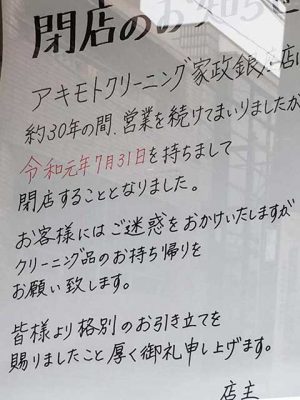 閉店のお知らせ
アキモトクリーニング家政銀座店は
約30年の間、営業を続けてまいりましたが
令和元年7月31日を持ちまして
閉店することとなりました。
お客様にはご迷惑をおかけいたしますが
クリーニング品のお持ち帰りを
お願い致します。
皆様より格別のお引き立てを
賜りましたこと厚く御礼申し上げます。
店主